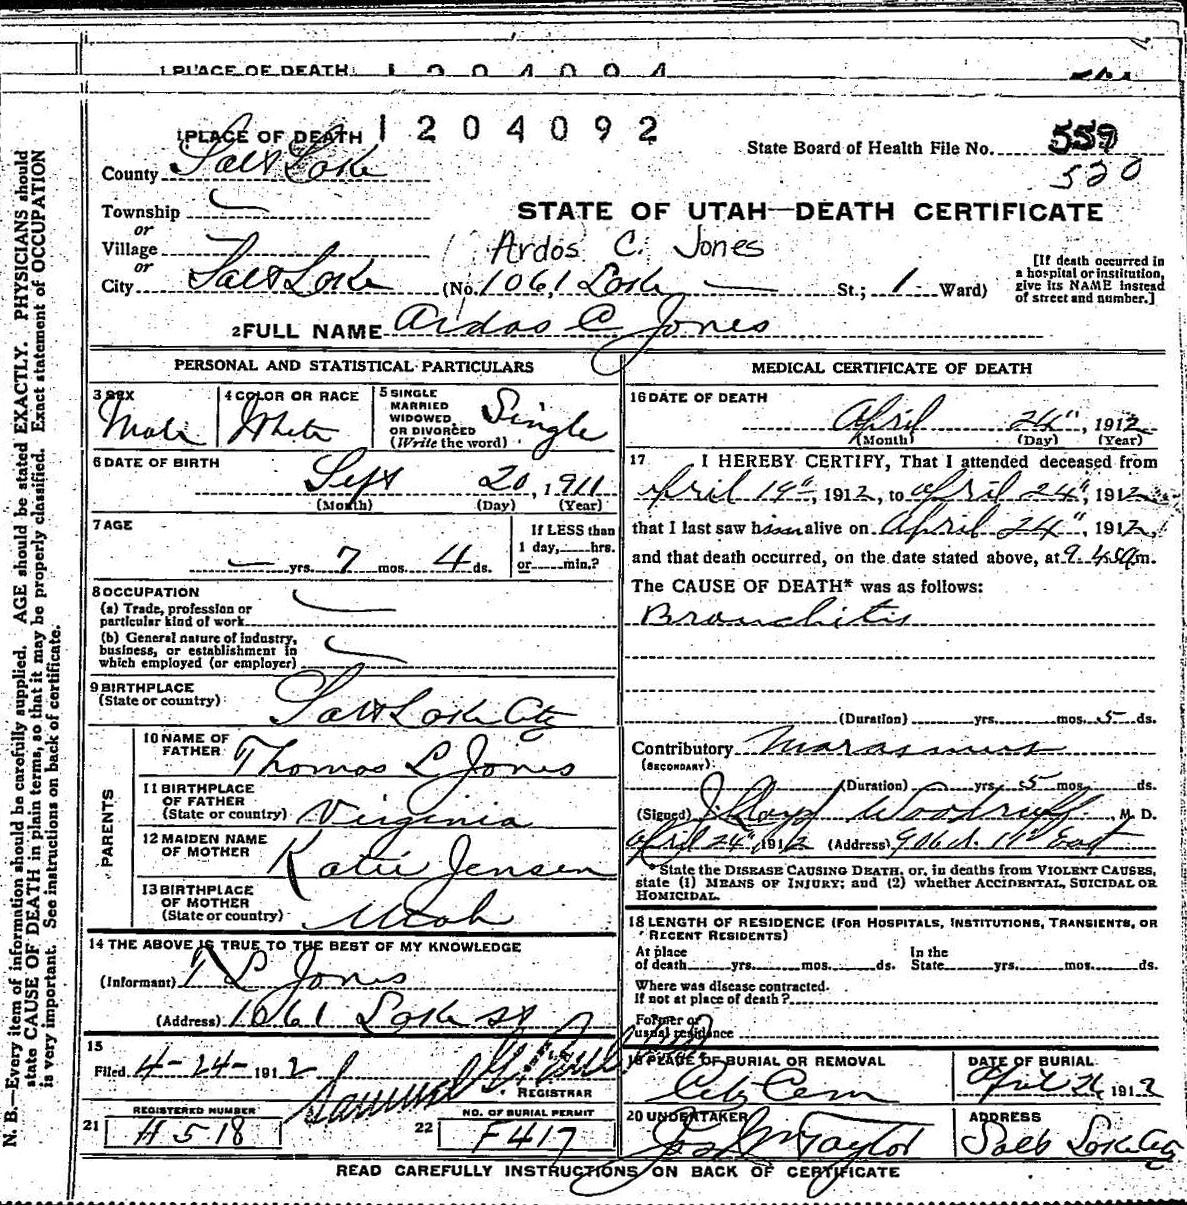 1 PLACE OF DEATH 1 2 0 4 0 9 4
1 PLACE OF DEATH 1 2 0 4 0 9 2
State Board of Health File No. 559
520
County Salt Lake
Township
or
Village
or
City Salt Lake
STATE OF UTAH—DEATH CERTIFICATE
Ardos C. Jones
(No. 1061 Lake St.; 1 Ward)
[If death occurred in
a hospital or institution,
give its NAME instead
of street and number.]
2 FULL NAME Ardos C Jones
PERSONAL AND STATISTICAL PARTICULARS
3 SEX
Male
4 COLOR OR RACE
White
5 SINGLE
MARRIED
WIDOWED
OR DIVORCED
(Write the word)
Single
6 DATE OF BIRTH
Sept 20, 1911
(Month) (Day) (Year)
7 AGE
— yrs. 7 mos. 4 ds.
If LESS than
1 day, hrs.
or min.?
8 OCCUPATION
(a) Trade, profession or
particular kind of work
(b) General nature of industry,
business, or establishment in
which employed (or employer)
9 BIRTHPLACE
(State or country)
Salt Lake City
PARENTS
10 NAME OF
FATHER
Thomas L Jones
11 BIRTHPLACE
OF FATHER
(State or country)
Virginia
12 MAIDEN NAME
OF MOTHER
Katie Jensen
13 BIRTHPLACE
OF MOTHER
(State or country)
Utah
14 THE ABOVE IS TRUE TO THE BEST OF MY KNOWLEDGE
(Informant) T L Jones
(Address) 1061 Lake St
15
Filed 4-24- 1912
Samuel G.
REGISTRAR
21 REGISTERED NUMBER
H518
22 NO. OF BURIAL PERMIT
F417
MEDICAL CERTIFICATE OF DEATH
16 DATE OF DEATH
April 24", 1912
(Month) (Day) (Year)
17 I HEREBY CERTIFY, That I attended deceased from
April 19", 1912, to April 24", 1912,
that I last saw him alive on April 24", 1912,
and that death occurred, on the date stated above, at 9.45am.
The CAUSE OF DEATH* was as follows:
Bronchitis
(Duration) yrs. mos. 5 ds.
Contributory Marasmus
(SECONDARY)
(Duration) yrs. 5 mos. ds.
(Signed) J Lloyd Woodruff, M. D.
April 24", 1912 (Address) 906 S. 11" East
*State the DISEASE CAUSING DEATH, or, in deaths from VIOLENT CAUSES,
state (1) MEANS OF INJURY; and (2) whether ACCIDENTAL, SUICIDAL OR
HOMICIDAL.
18 LENGTH OF RESIDENCE (FOR HOSPITALS, INSTITUTIONS, TRANSIENTS, OR
RECENT RESIDENTS)
At place
of death yrs. mos. ds.
In the
State yrs. mos. ds.
Where was disease contracted.
If not at place of death?
Former or
usual residence
19 PLACE OF BURIAL OR REMOVAL
City Cem
DATE OF BURIAL
April 26 1912
20 UNDERTAKER
Jos Wm Taylor
ADDRESS
Salt Lake City
READ CAREFULLY INSTRUCTIONS ON BACK OF CERTIFICATE
N. B.—Every item of information should be carefully supplied. AGE should be stated EXACTLY. PHYSICIANS should
state CAUSE OF DEATH in plain terms, so that it may be properly classified. Exact statement of OCCUPATION
is very important. See instructions on back of certificate.